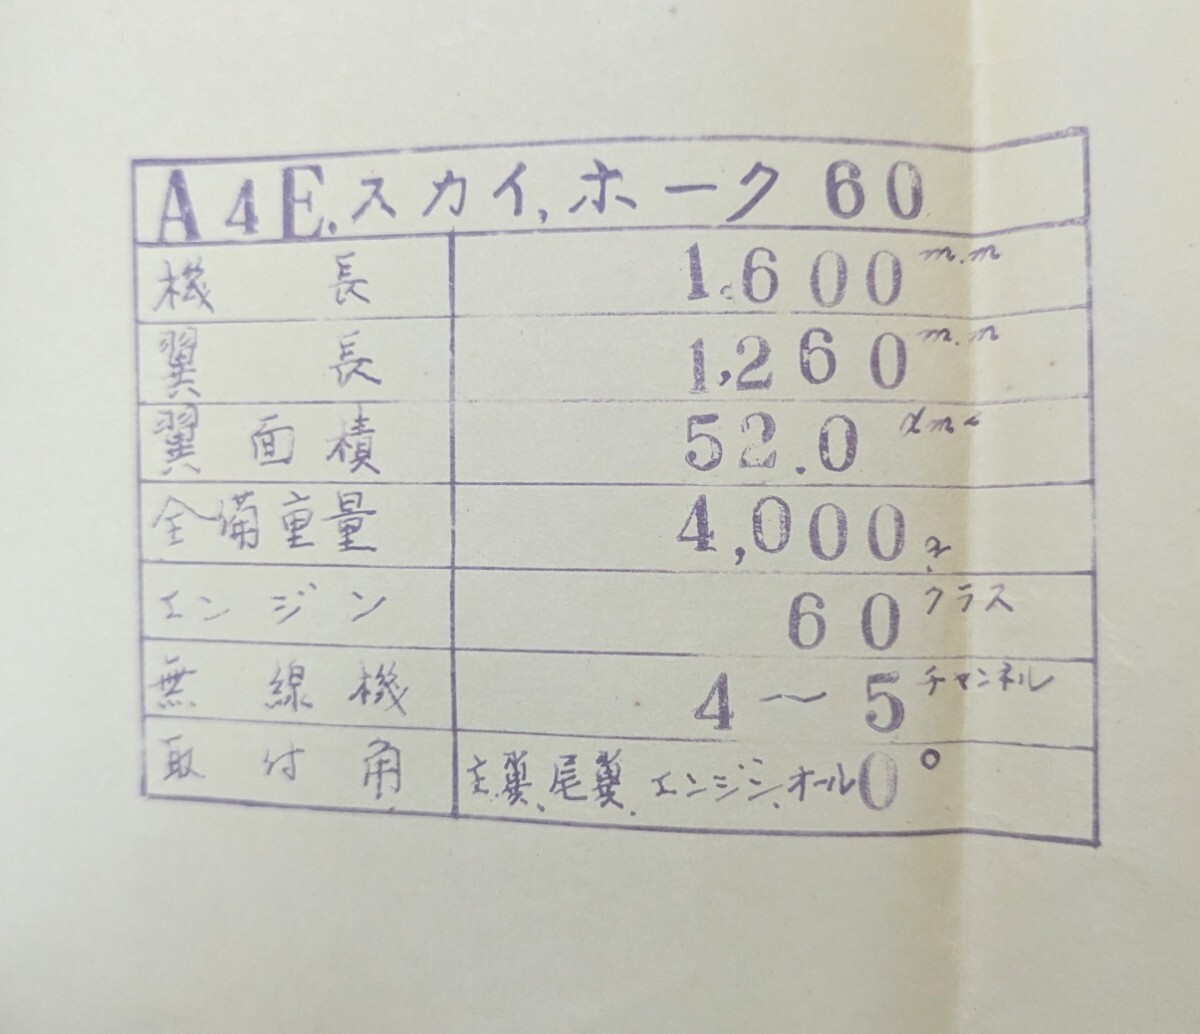 A4E.スカイ,ホーク 60
機長 1,600 m.m
翼長 1,260 m.m
翼面積 52.0 dm²
全備重量 4,000 g.
エンジン 60 クラス
無線機 4〜5 チャンネル
取付角 主翼、尾翼、エンジン、オール0°